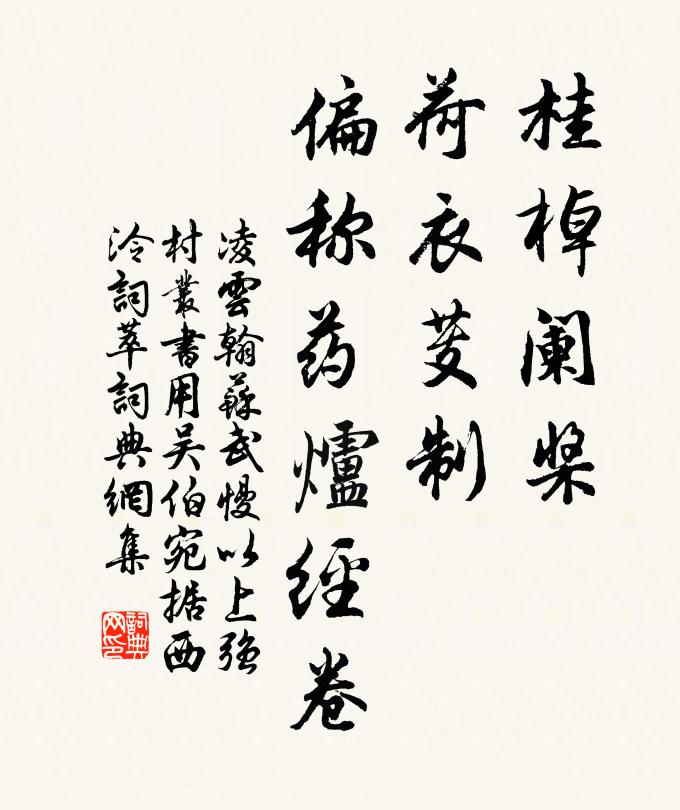 桂棹阑桨
荷衣芰制
偏称药爐經卷
凌雲翰蘇武慢以上强
村叢書用吴伯宛据西
泠詞萃詞典網集
詞典网印